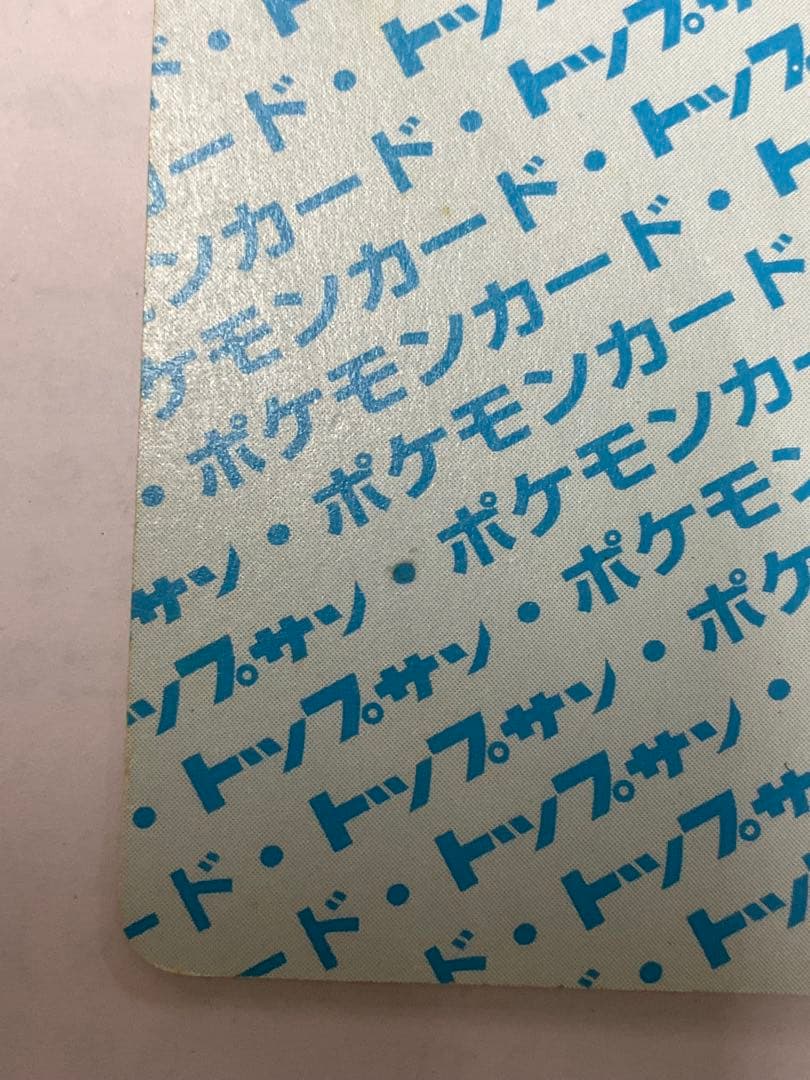 ド・ト
ード・トッ
ンカード・トップ
ケモンカード・トップ
・ポケモンカード・ト
サン・ポケモンカード
ップサン・ポケモンカー
・トップサン・ポケモン
ード・トップサン・ポケ
ード・トップサン・
ド・トップサ
・トッ